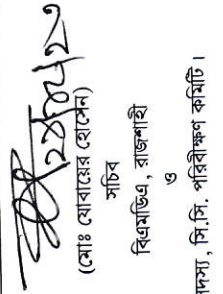 (মোঃ যোবায়ের হোসেন)
সচিব
বিএমডিএ, রাজশাহী
ও
সদস্য, সি.সি. পরিবীক্ষণ কমিটি।